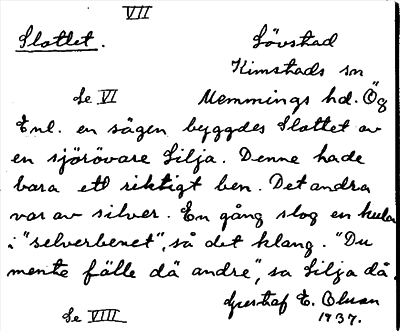 VII
Slottet. Lövstad
Kimstads sn
Se VI Memmings hd. Ög
Enl. en sägen byggdes Slottet av
en sjörövare Silja. Denne hade
bara ett riktigt ben. Det andra
var av silver. En gång slog en kula
i "selverbenet", så det klang. "Du
mente fälle dä andre", sa Silja då.
Gustaf E. Olsson
Se VIII 1937.